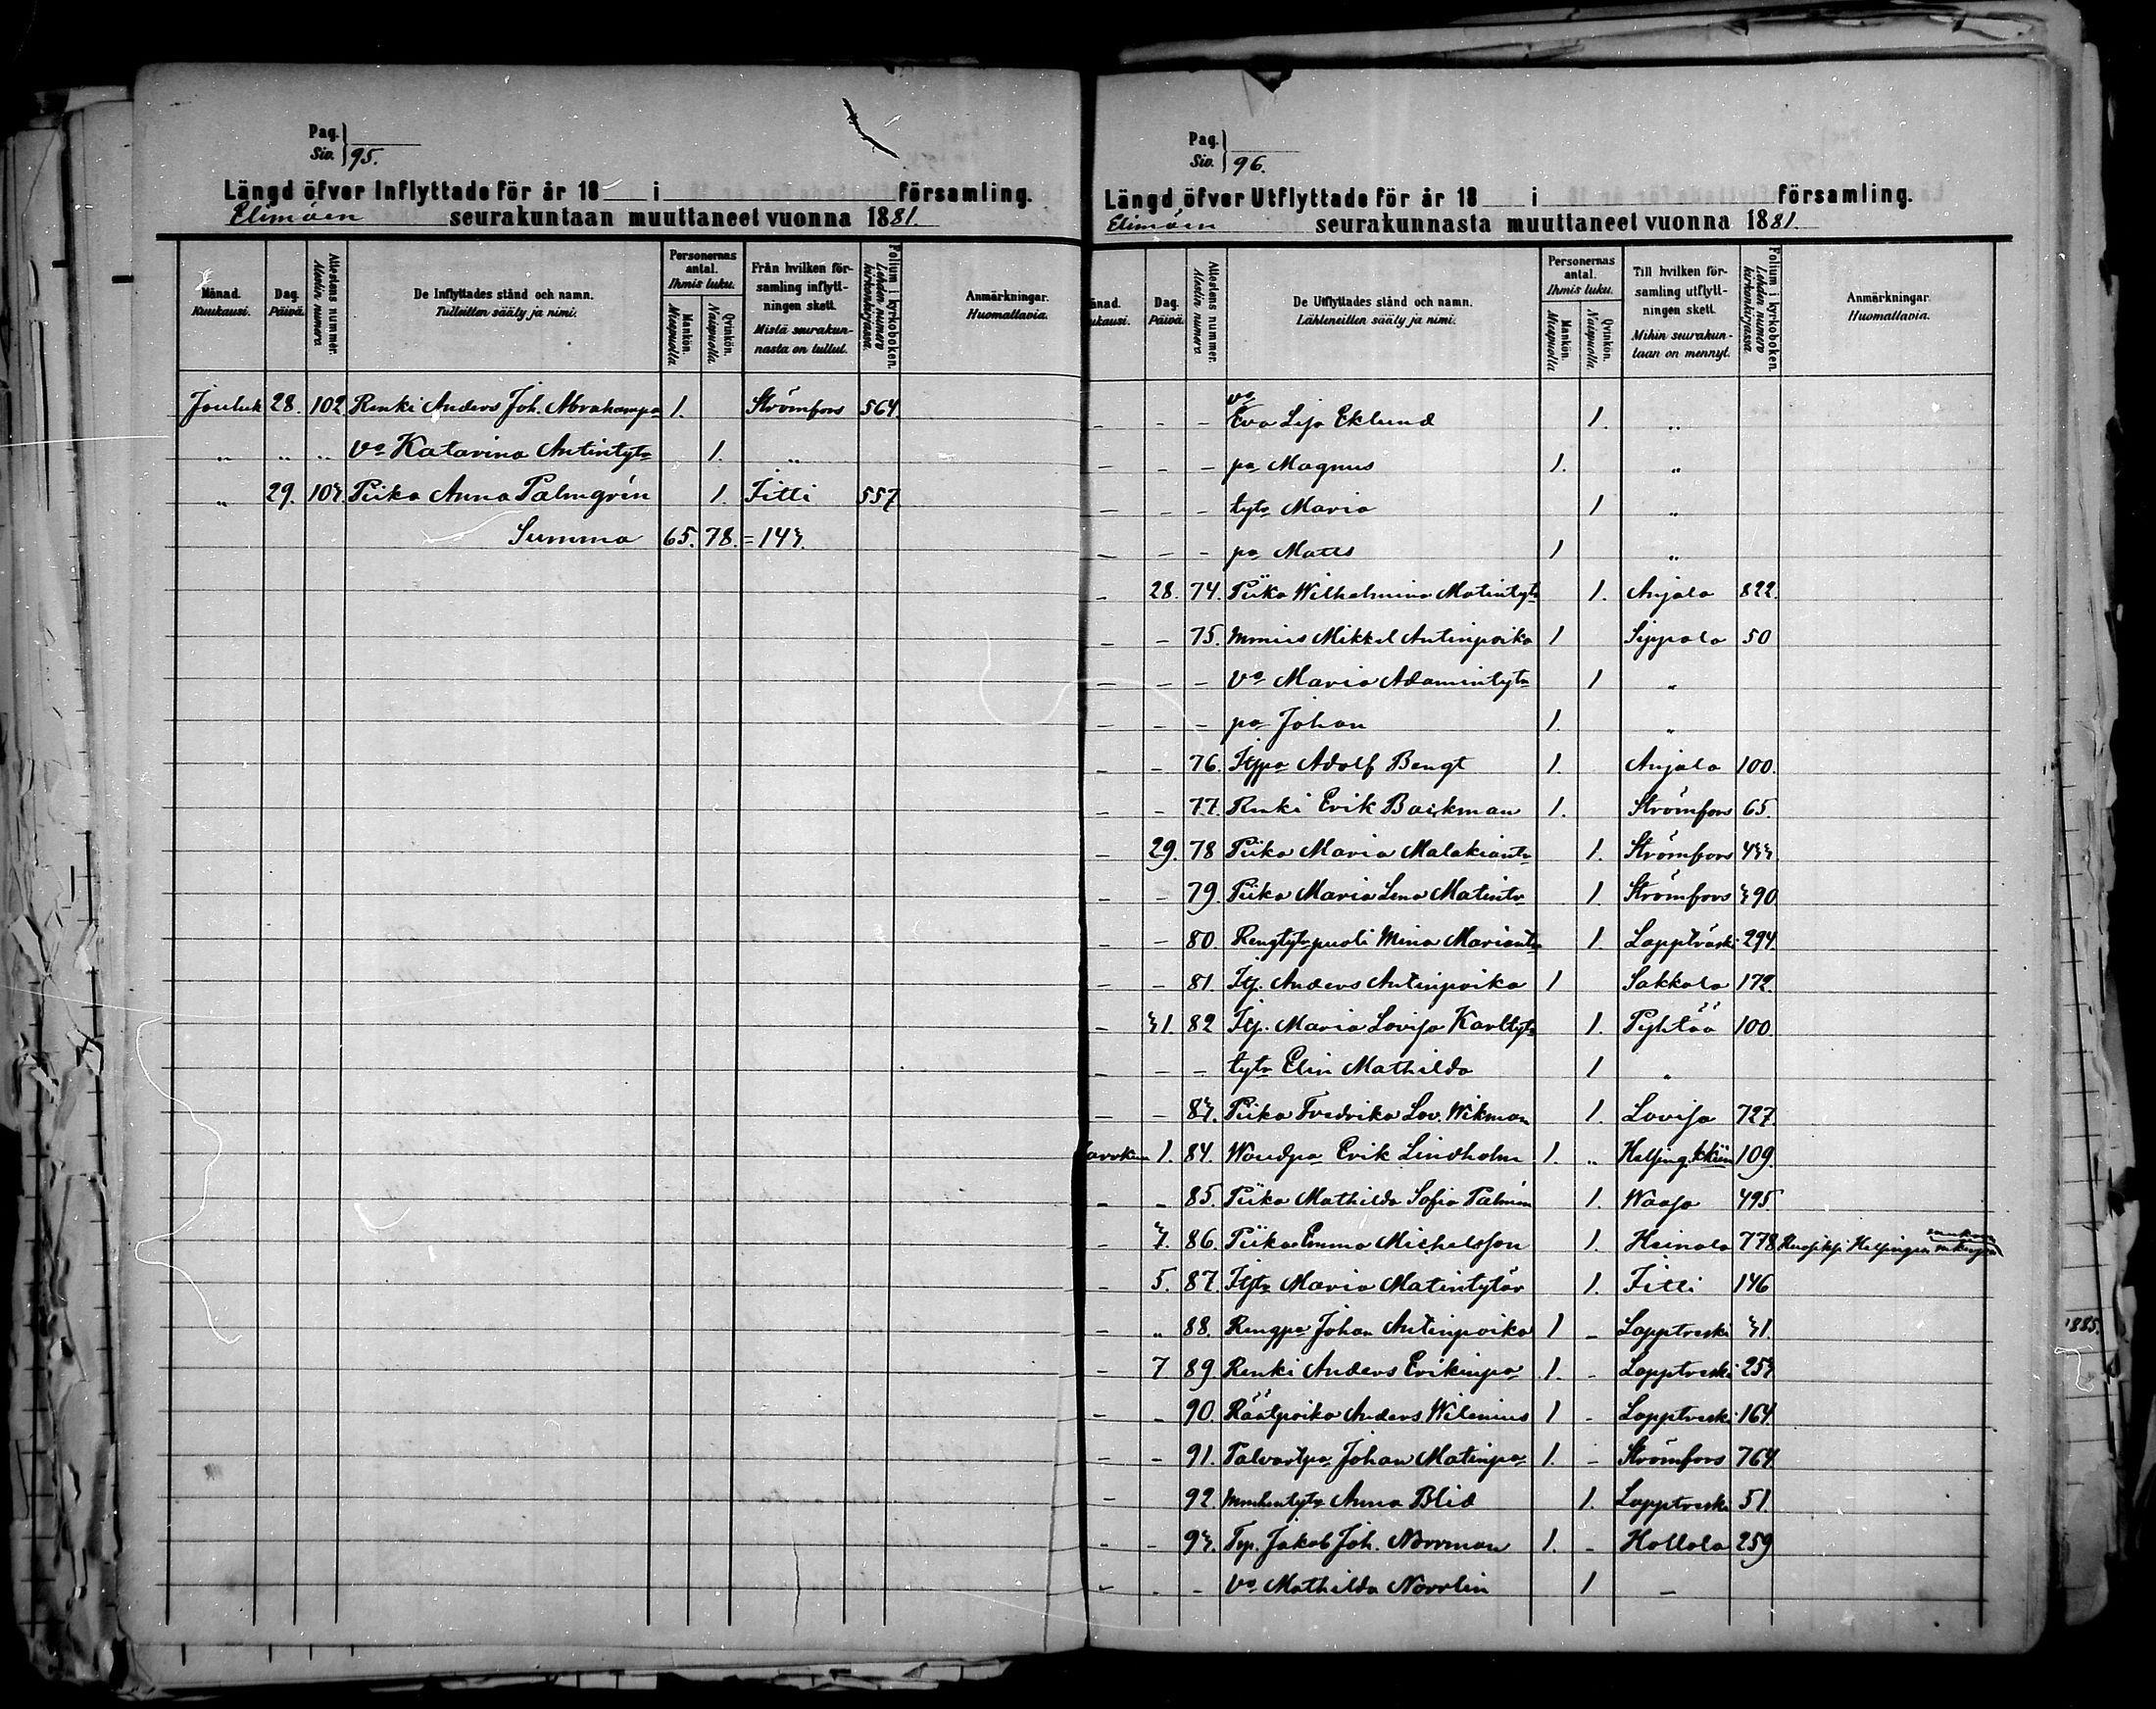 Pag.
Siv. 95.
Längd öfver Inflyttade för år 18 i församling.
Elimäen seurakuntaan muuttaneet vuonna 1881.
Månad. Kuukausi. Dag. Päivä. Attestens nummer. Alestin numero De Inflyttades stånd och namn. Tulleitten sääty ja nimi. Personernas antal. Ihmis luku. Mankön. Miespuolia Qvinkön. Naispuolia. Från hvilken församling inflyttningen skett. Mistä seurakunnasta on tullut. Folium i kyrkoboken. Lehden numero kirkonkirjassa. Anmärkningar. Huomattavia.
Jouluk 28. 102 Renki Anders Joh. Abrahampa 1. Strömfors 564.
„ „ „ Vo Katarina Antintytr 1. „
„ 29. 103. Piika Anna Palmgrén 1. Iitti 557
Summa 65. 78. = 143.
Pag.
Siv. 96.
Längd öfver Utflyttade för år 18 i församling.
Elimäen seurakunnasta muuttaneet vuonna 1881.
Månad. Kuukausi. Dag. Päivä. Attestens nummer. Alestin numero De Utflyttades stånd och namn. Lähteneitten sääty ja nimi. Personernas antal. Ihmis luku. Mankön. Miespuolia Qvinkön. Naispuolia. Till hvilken församling utflyttningen skett. Mihin seurakuntaan on mennyt. Folium i kyrkoboken. Lehden numero kirkonkirjassa. Anmärkningar. Huomattavia.
– – – vo Eva Lisa Eklund 1. „
– – – pa Magnus 1. „
– – – tytr Maria 1 „
– – – pa Matts 1 „
– 28. 74. Piika Wilhelmina Matintytr 1. Anjala 822.
– – 75. Mmies Mikkel Antinpoika 1 Sippola 50
– – – Vo Maria Adamintytr 1 „
– – – pa Johan 1. „
– – 76. Itjpa Adolf Bengt 1. Anjala 100.
– – 77. Renki Erik Backman 1. Strömfors 65.
– 29. 78 Piika Maria Malakiantr 1. Strömfors 433.
– – 79. Piika Maria Lena Matintr 1. Strömfors 390
– – 80. Rengtytrpuoli Mina Mariantr 1. Lappträski 294.
– – 81. Itj. Anders Antinpoika 1 Sakkola 172.
– 31. 82 Itj. Maria Lovisa Karltytr 1. Pyhtää 100.
– – – tytr Elin Mathilda 1 „
– – 83. Piika Fredrika Lov. Wikman 1. Lovisa 727.
1. 84. Erik Lindholm 1. „ 109.
– – 85. Piika Mathilda Sofia Palmén 1. Waasa 495.
– 3. 86. Piika Emma Michelsson 1. Heinola 778
– 5. 87. Itjtr Maria Matintytär 1. Iitti 146
– „ 88. Rengpa Johan Antinpoika 1 – Lapptreski 31.
– 7 89 Renki Anders Erikinpa 1. – Lapptreski 253
– – 90. Räätpoika Anders Wilenius 1 – Lapptreski 164.
– – 91. Johan Matinpa 1. – Strömfors 764
– 92. Anna Blid 1. Lapptreski 51.
– – 93. Tsp. Jakob Joh. Norrman 1. – Hollola 259
– – – Vo Mathilda Norrlin 1 –
1885.